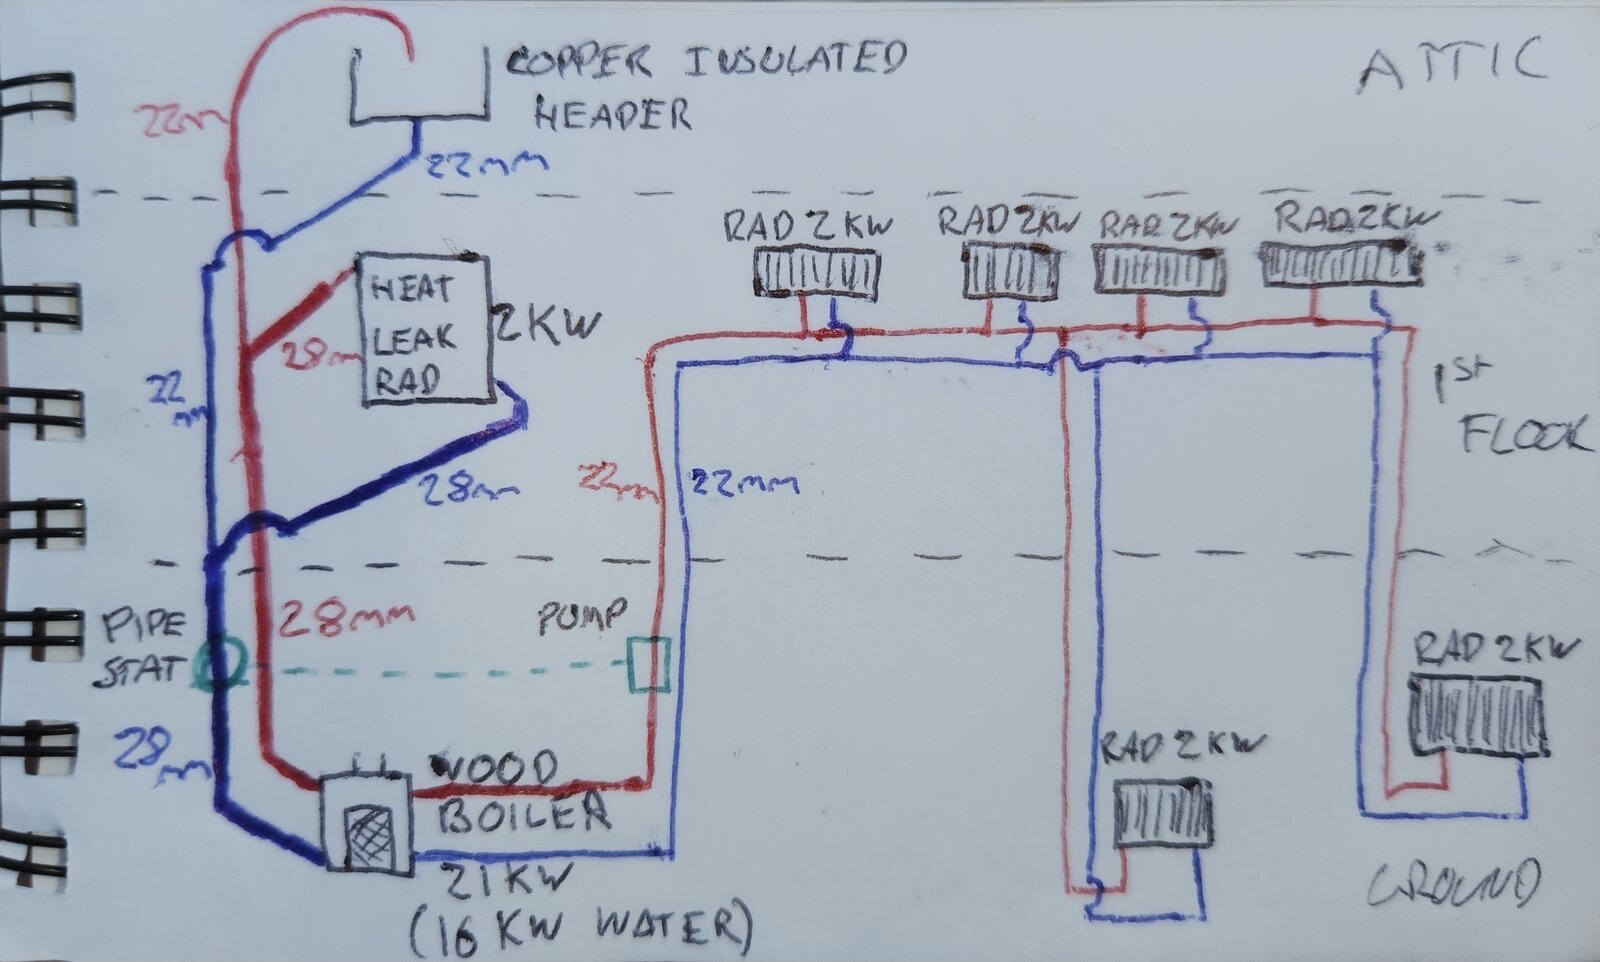 COPPER INSULATED
HEADER
ATTIC
22mm
22mm
RAD 2KW
RAD 2KW
RAD 2KW
RAD 2KW
HEAT
LEAK
RAD
2KW
28mm
22
mm
1ST
FLOOR
28mm
22mm
22mm
PIPE
STAT
28mm
PUMP
28
mm
RAD 2KW
RAD 2KW
WOOD
BOILER
21KW
(16 KW WATER)
GROUND